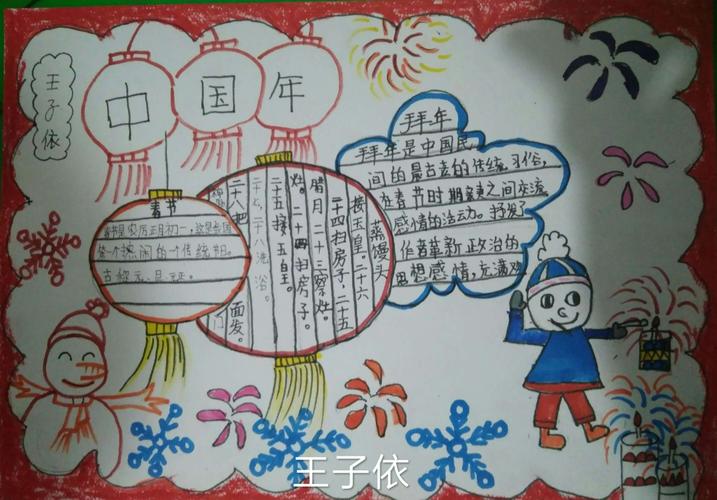 王子依
中国年
拜年
拜年是中国民
间的最古老的传统习俗,
在春节时期亲之间交流
感情的活动。抒发了
作者革新政治的
思想感情,充满
春节
春节是农历正月初一,这是我国
一个热闹的一个传统节日。
古称元旦
蒸馒头
接玉皇。二十六
二十四扫房子,二十五
腊月二十三祭灶。
灶。二十四扫房子。
二十五接五皇。
二十七、二十八洗浴。
二十八把
面发。
门
王子依